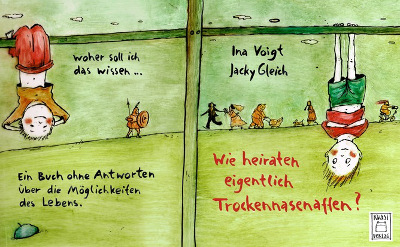 woher soll ich
das wissen...
Ein Buch ohne Antworten
über die Möglichkeiten
des Lebens.
Ina Voigt
Jacky Gleich
Wie heiraten
eigentlich
Trockennasenaffen?
VERLAG